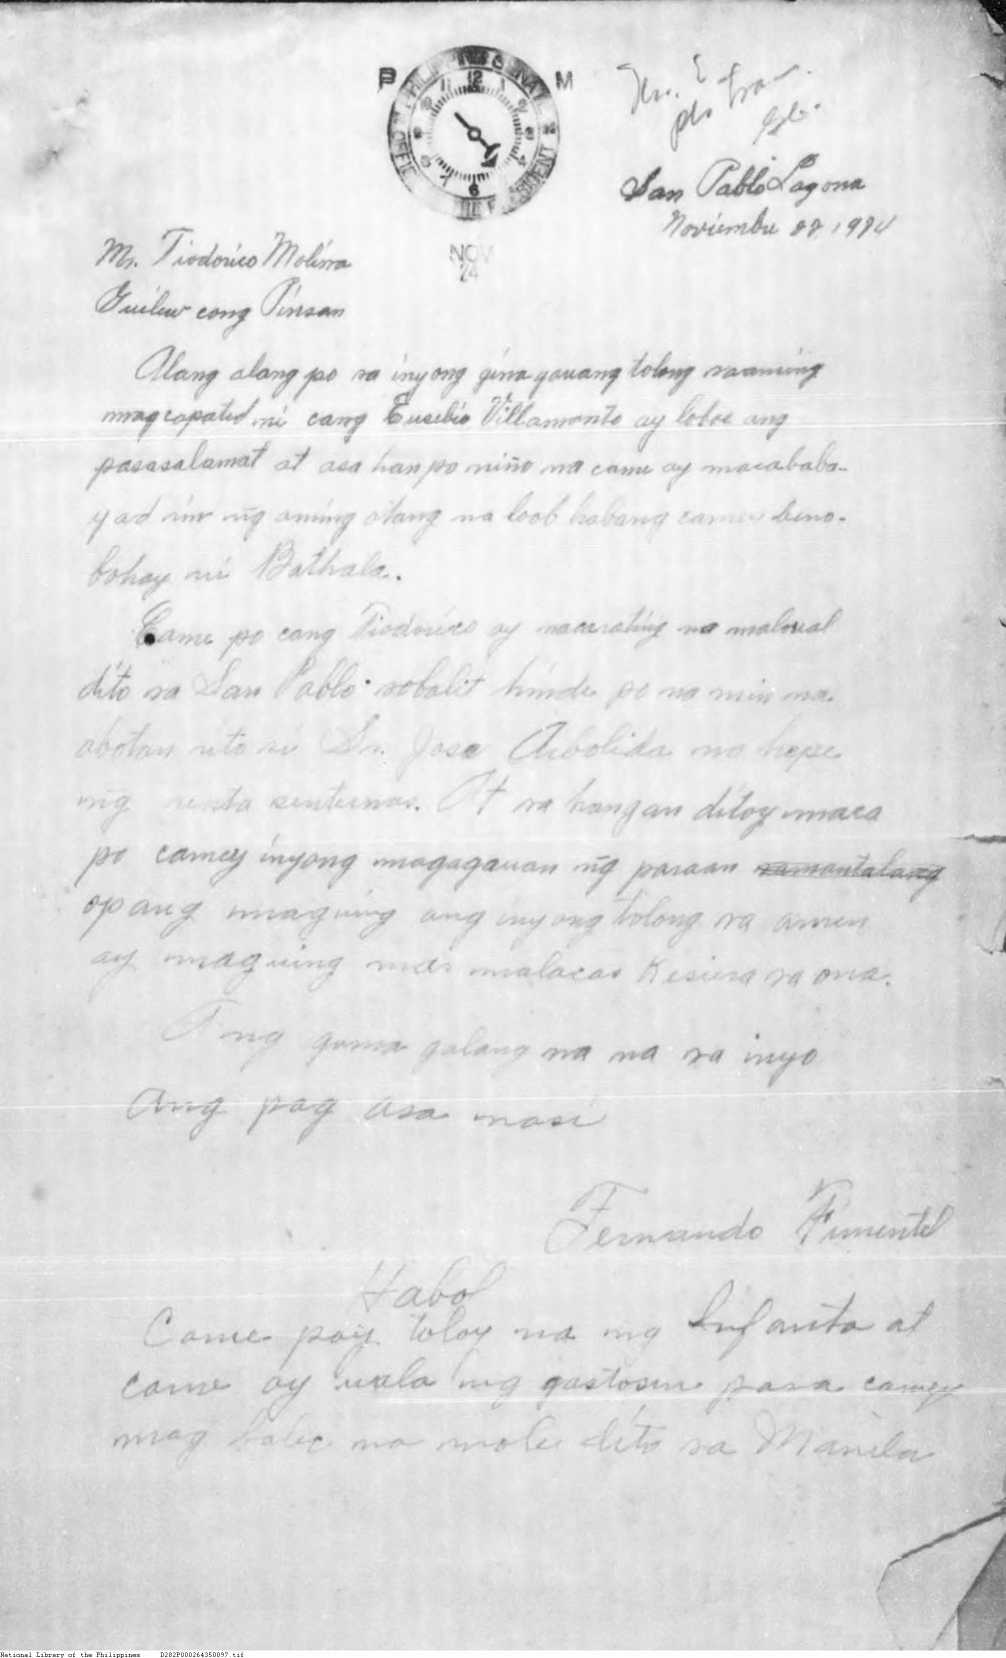 P M
PHILIPPINE SENATE
OFFICE OF THE PRESIDENT
NOV
24
San Pablo Laguna
Noviembre 22, 1924
Mr. Tiodorico Molina
Guiliw cong Pinsan
Alang alang po sa inyong ginagauang tolong saaming
magcapatid ni cang Eusebio Villamonte ay lobos ang
pasasalamat at asa han po niño na came ay macababa-
yad rin ng aming otang na loob habang camey beno-
bohay ni Bathala.
Came po cang Tiodorico ay nacarating na maloual
dito sa San Pablo sobalit hinde po na min na
abotan rito si Sr. Jose Arbolida na hepe
ng renta enternas. At sa hangan ditoy maca
po camey inyong magagauan ng paraan samantalang
opang maguing ang inyong tolong sa amen
ay maguing mas malacas kesiera sa ona.
Ang guma galang na na sa inyo
Ang pag asa nasi
Fernando Pimentel
Habol
Came poy toloy na ng Infanta at
came ay uala ng gastosen para camey
mag balic na mole dito sa Manila
National Library of the Philippines D282P000264350097.tif